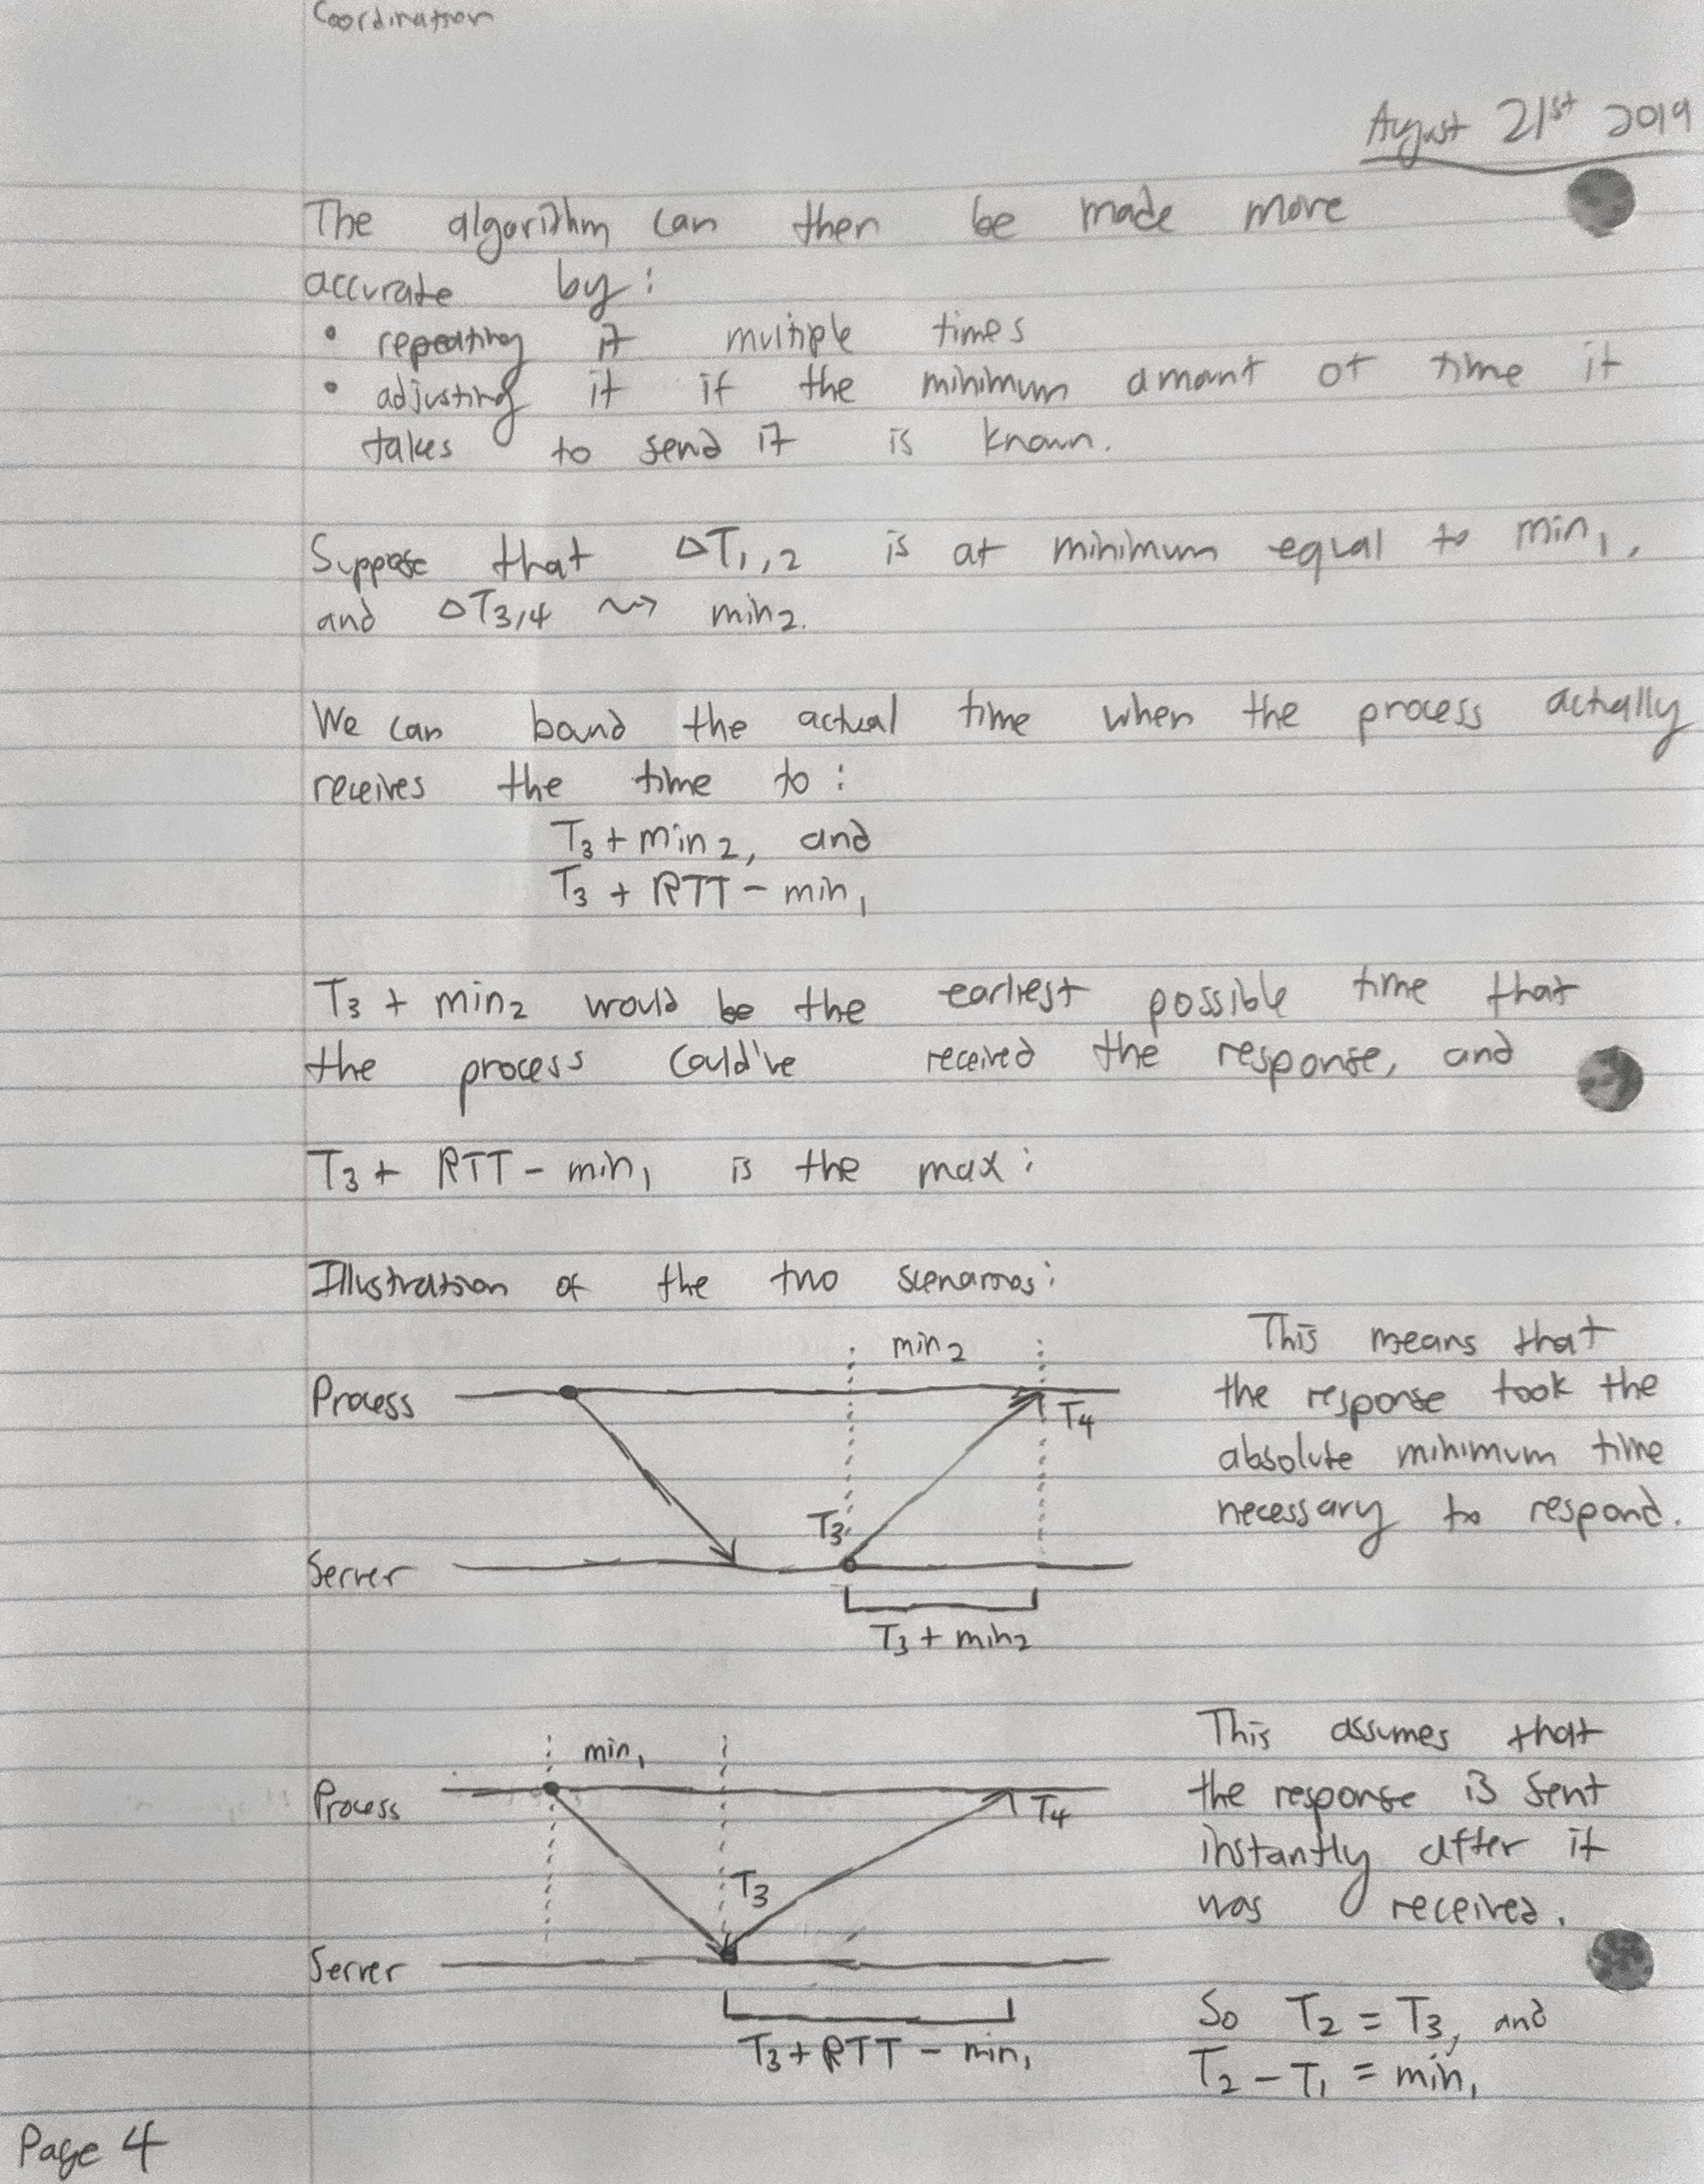 Coordination
August 21st 2019
The algorithm can then be made more
accurate by:
• repeating it multiple times
• adjusting it if the minimum amount of time it
takes to send it is known.
Suppose that ΔT₁,₂ is at minimum equal to min₁,
and ΔT₃,₄ ⇝ min₂.
We can bound the actual time when the process actually
receives the time to:
T₃ + min₂, and
T₃ + RTT - min₁
T₃ + min₂ would be the earliest possible time that
the process could've received the response, and
T₃ + RTT - min₁ is the max:
Illustration of the two scenarios:
min₂
Process
T₄
T₃
Server
T₃ + min₂
This means that
the response took the
absolute minimum time
necessary to respond.
min₁
Process
T₄
T₃
Server
T₃ + RTT - min₁
This assumes that
the response is sent
instantly after it
was received.
So T₂ = T₃, and
T₂ - T₁ = min₁
Page 4